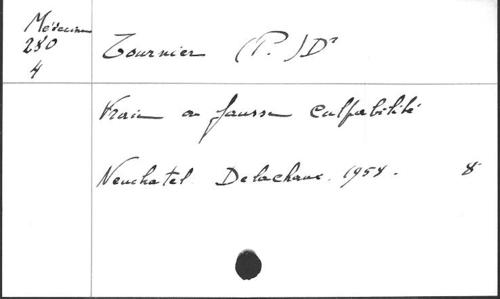 Médecine
280
4
Tournier (P.) Dr
Vraie ou fausse culpabilité
Neuchatel Delachaux. 1958. 8